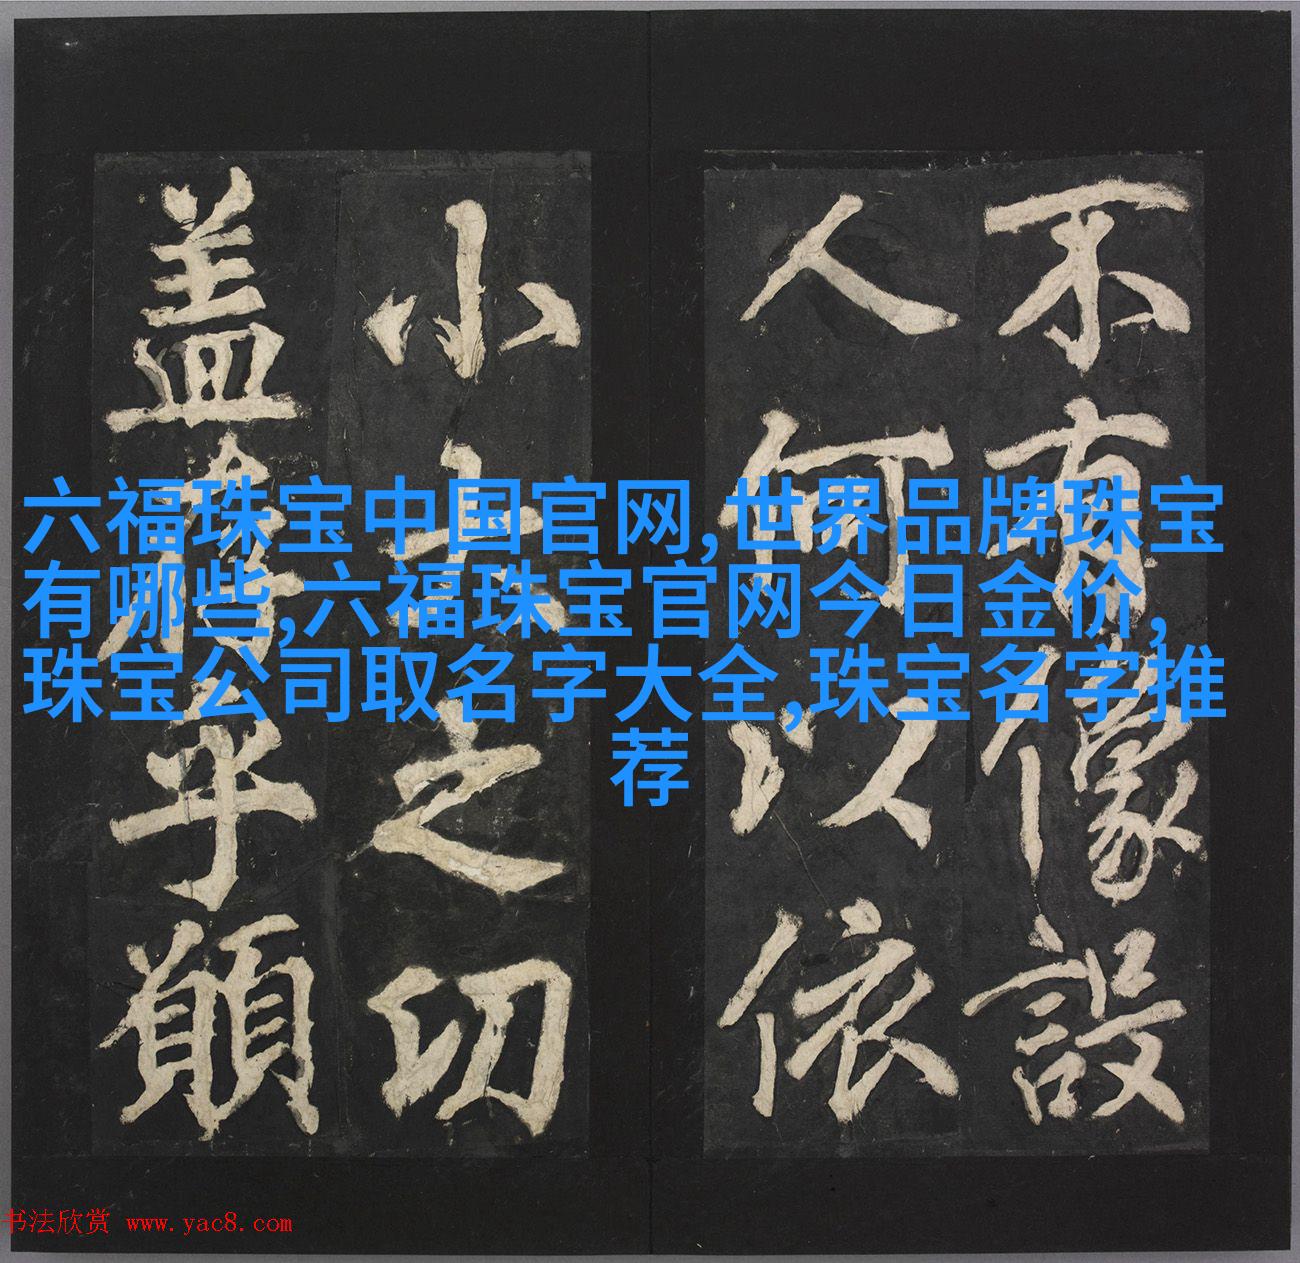 不有像設
人何以依
小之切
盖乎願
六福珠宝中国官网,世界品牌珠宝
有哪些,六福珠宝官网今日金价,
珠宝公司取名字大全,珠宝名字推
荐
书法欣赏 www.yac8.com